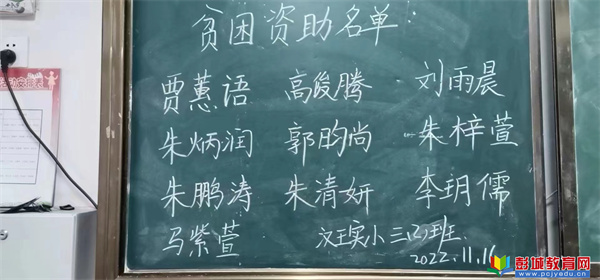 贫困资助名单:
贾蕙语 高俊腾 刘雨晨
朱炳润 郭昀尚 朱梓萱
朱鹏涛 朱清妍 李玥儒
马紫萱 汉王实小三(2)班
2022.11.16
彭城教育网
www.pcjyedu.cn